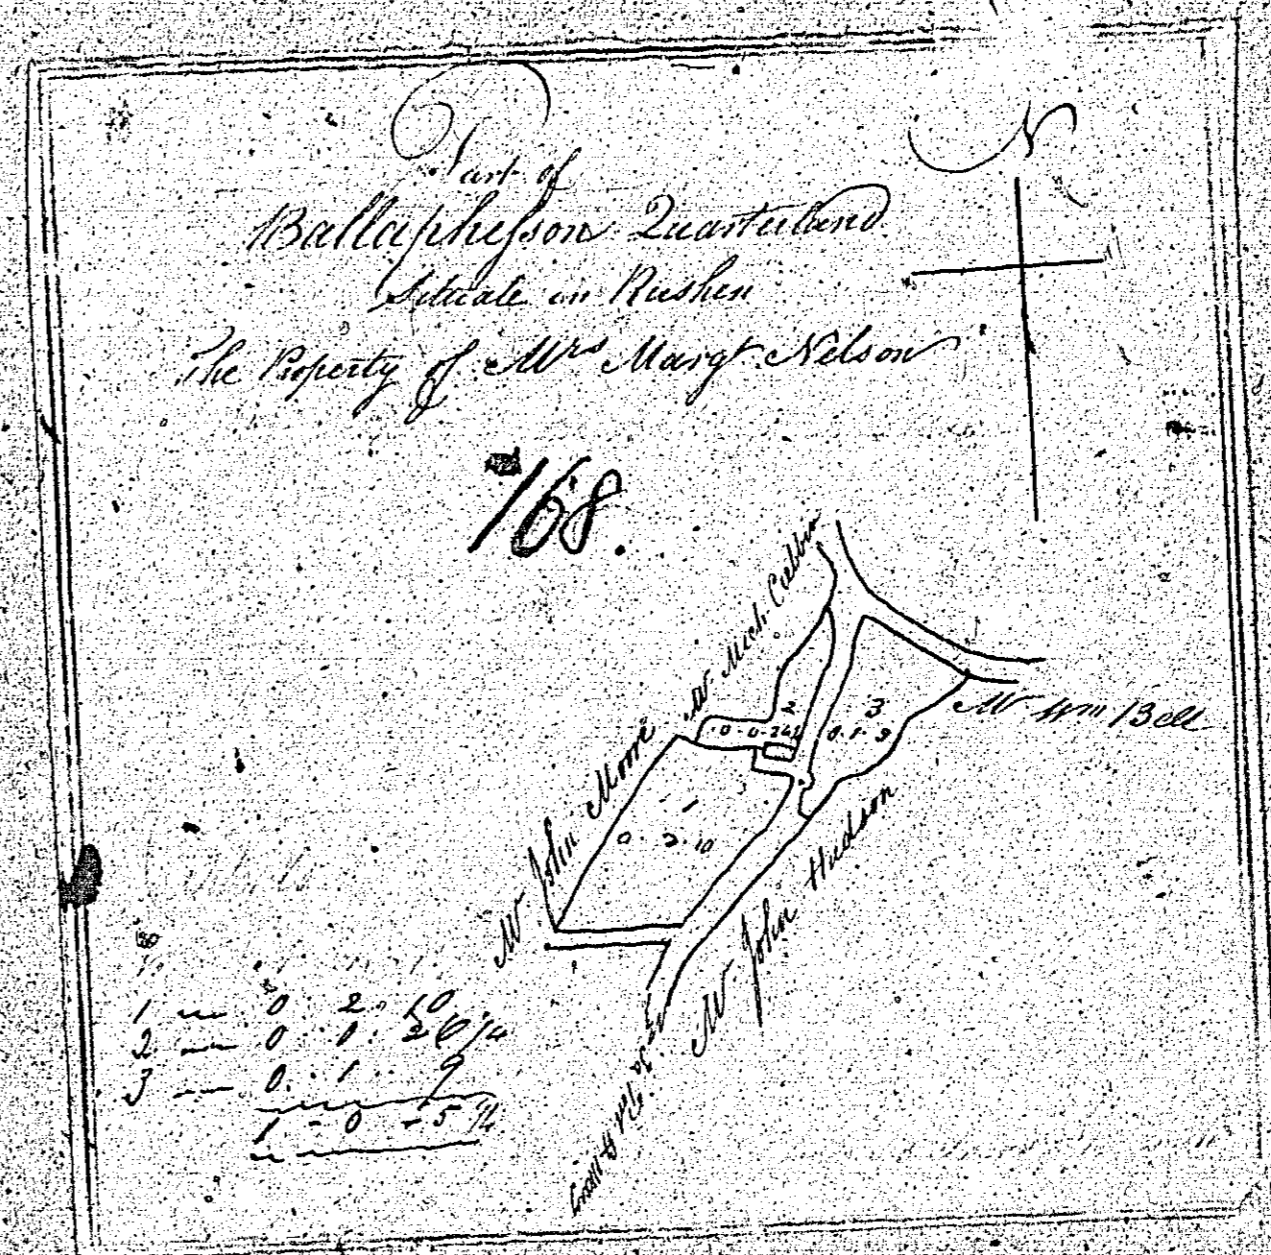 N
Part of
Ballaphesson Quarterland
Situate in Rushen
The Property of Mrs Margt Nelson
168.
Mr Mich. Cubbon
Mr John Moore
Mr Wm Bell
Mr John Hudson
2
3
0.1.9
1
0.2.10
1 0 2 10
2 0
3 0 1 9
1 - 0 - 5